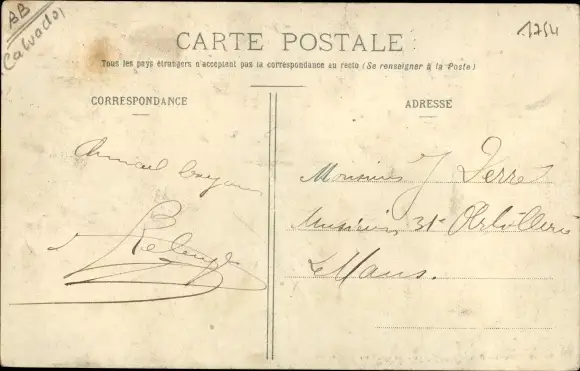 BB
Calvados
1754
CARTE POSTALE
Tous les pays étrangers n'acceptent pas la correspondance au recto (Se renseigner à la Poste)
CORRESPONDANCE
ADRESSE
Amical
Monsieur J Ferré
Musicien 31e Artillerie
Le Mans.